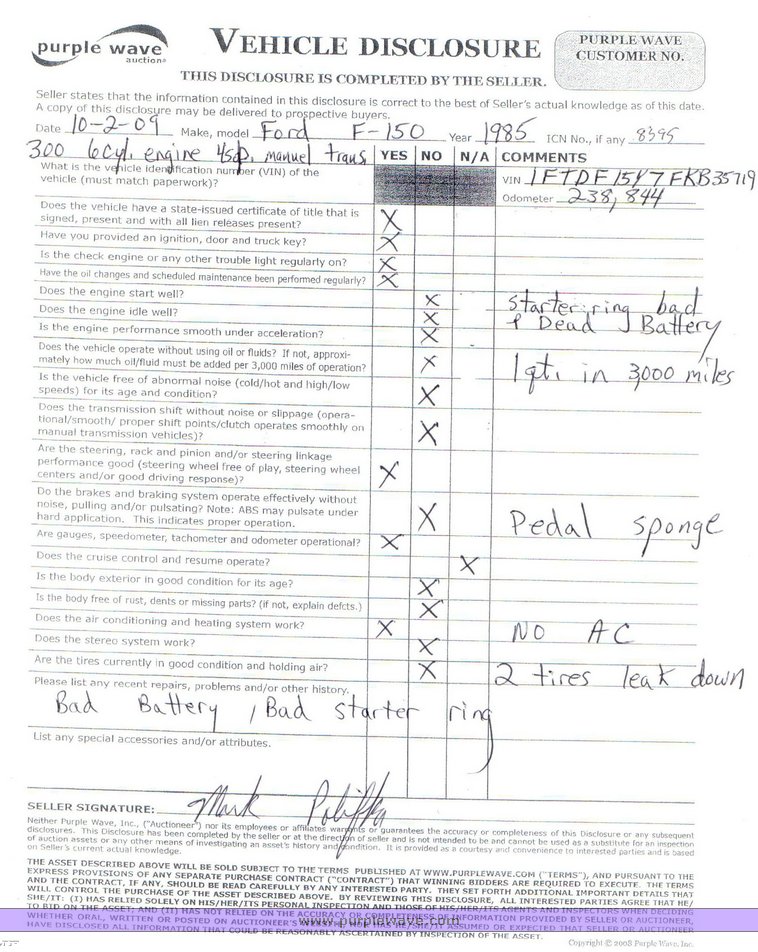 purple wave
auction
VEHICLE DISCLOSURE
PURPLE WAVE
CUSTOMER NO.
THIS DISCLOSURE IS COMPLETED BY THE SELLER.
Seller states that the information contained in this disclosure is correct to the best of Seller's actual knowledge as of this date.
A copy of this disclosure may be delivered to prospective buyers.
Date 10-2-09 Make, model Ford F-150 Year 1985 ICN No., if any 8395
300 6cyl. engine 4sp. manuel trans YES NO N/A COMMENTS
What is the vehicle identification number (VIN) of the
vehicle (must match paperwork)?
VIN 1FTDF15Y7FKB35719
Odometer 238,844
Does the vehicle have a state-issued certificate of title that is
signed, present and with all lien releases present? X
Have you provided an ignition, door and truck key? X
Is the check engine or any other trouble light regularly on? X
Have the oil changes and scheduled maintenance been performed regularly? X
Does the engine start well? X starter ring bad
Does the engine idle well? X & Dead Battery
Is the engine performance smooth under acceleration? X
Does the vehicle operate without using oil or fluids? If not, approxi-
mately how much oil/fluid must be added per 3,000 miles of operation? X 1 qt. in 3,000 miles
Is the vehicle free of abnormal noise (cold/hot and high/low
speeds) for its age and condition? X
Does the transmission shift without noise or slippage (opera-
tional/smooth/ proper shift points/clutch operates smoothly on
manual transmission vehicles)? X
Are the steering, rack and pinion and/or steering linkage
performance good (steering wheel free of play, steering wheel
centers and/or good driving response)? X
Do the brakes and braking system operate effectively without
noise, pulling and/or pulsating? Note: ABS may pulsate under
hard application. This indicates proper operation. X Pedal sponge
Are gauges, speedometer, tachometer and odometer operational? X
Does the cruise control and resume operate? X
Is the body exterior in good condition for its age? X
Is the body free of rust, dents or missing parts? (if not, explain defcts.) X
Does the air conditioning and heating system work? X NO AC
Does the stereo system work? X
Are the tires currently in good condition and holding air? X 2 tires leak down
Please list any recent repairs, problems and/or other history.
Bad Battery, Bad starter ring
List any special accessories and/or attributes.
SELLER SIGNATURE: Mark
Neither Purple Wave, Inc., ("Auctioneer") nor its employees or affiliates warrants or guarantees the accuracy or completeness of this Disclosure or any subsequent
disclosures. This Disclosure has been completed by the seller or at the direction of seller and is not intended to be and cannot be used as a substitute for an inspection
of auction assets or any other means of investigating an asset's history and condition. It is provided as a courtesy and convenience to interested parties and is based
on Seller's current actual knowledge.
THE ASSET DESCRIBED ABOVE WILL BE SOLD SUBJECT TO THE TERMS PUBLISHED AT WWW.PURPLEWAVE.COM ("TERMS"), AND PURSUANT TO THE
EXPRESS PROVISIONS OF ANY SEPARATE PURCHASE CONTRACT ("CONTRACT") THAT WINNING BIDDERS ARE REQUIRED TO EXECUTE. THE TERMS
AND THE CONTRACT, IF ANY, SHOULD BE READ CAREFULLY BY ANY INTERESTED PARTY. THEY SET FORTH ADDITIONAL IMPORTANT DETAILS THAT
WILL CONTROL THE PURCHASE OF THE ASSET DESCRIBED ABOVE. BY REVIEWING THIS DISCLOSURE, ALL INTERESTED PARTIES AGREE THAT HE/
SHE/IT: (I) HAS RELIED SOLELY ON HIS/HER/ITS PERSONAL INSPECTION AND THOSE OF HIS/HER/ITS AGENTS AND INSPECTORS WHEN DECIDING
TO BID ON THE ASSET; AND (II) HAS NOT RELIED ON THE ACCURACY OR COMPLETENESS OF INFORMATION PROVIDED BY SELLER OR AUCTIONEER
WHETHER ORAL, WRITTEN OR POSTED ON AUCTIONEER'S HAS HE/SHE/IT ASSUMED OR EXPECTED THAT SELLER OR AUCTIONEER
HAVE DISCLOSED ALL INFORMATION THAT COULD BE REASONABLY ASCERTAINED BY INSPECTION OF THE ASSET.
www.purplewave.com
Copyright © 2008 Purple Wave, Inc.